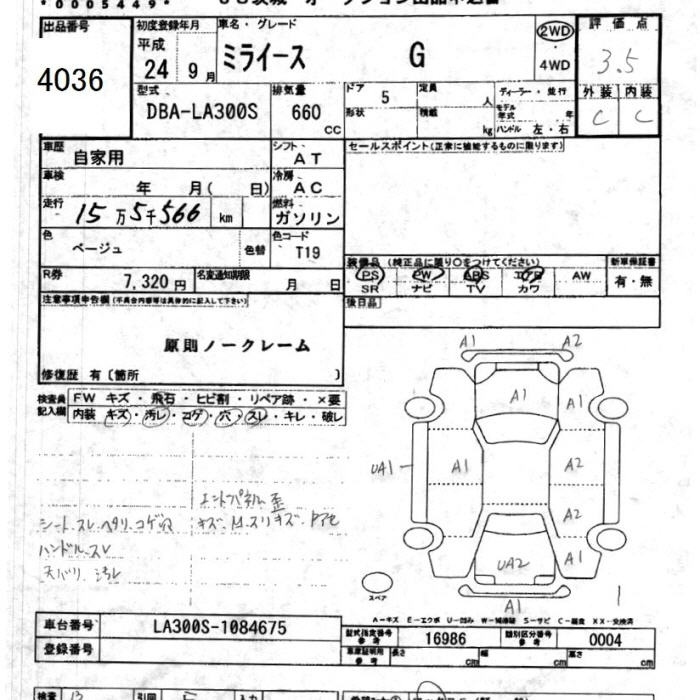 0005449
出品番号
4036
初度登録年月
平成
24 9月
車名・グレード
ミライース G
2WD
・
4WD
評価点
3.5
外装 内装
C C
型式
DBA-LA300S
排気量
660
CC
ドア
5
形状
定員
人
積載
kg
ディーラー・並行
モデル年式 年
ハンドル 左・右
車歴
自家用
シフト
AT
セールスポイント(正常に機能するものに限ります)
車検
年 月( 日)
冷房
AC
走行
15万5千566 km
燃料
ガソリン
色
ベージュ
色替
色コード
T19
装備品 (純正品に限り○をつけてください)
新車保証書
PS PW ABS エアB AW
有・無
SR ナビ TV カワ
R券
7,320円
名変通知期限
月 日
後日品
注意事項申告欄(不具合内容等は具体的に記入して下さい)
原則ノークレーム
修復歴 有〔箇所 〕
検査員記入欄
FW キズ・飛石・ヒビ割・リペア跡・×要
内装 キズ・汚レ・コゲ・穴・スレ・キレ・破レ
シートスレ ヘタリ コゲ穴
ハンドルスレ
天バリ 汚レ
エンドパネル 歪
A1 A2
A1 A1
UA1 A1 A2
A2
UA2 A1
A1
スペア
A－キズ E－エクボ U－凹み W－補修跡 S－サビ C－腐食 XX－交換済
車台番号
LA300S-1084675
登録番号
型式指定番号
参考
16986
類別区分番号
参考
0004
車庫証明用
参考
長さ cm
幅 cm
高さ cm
検査
引回
入力